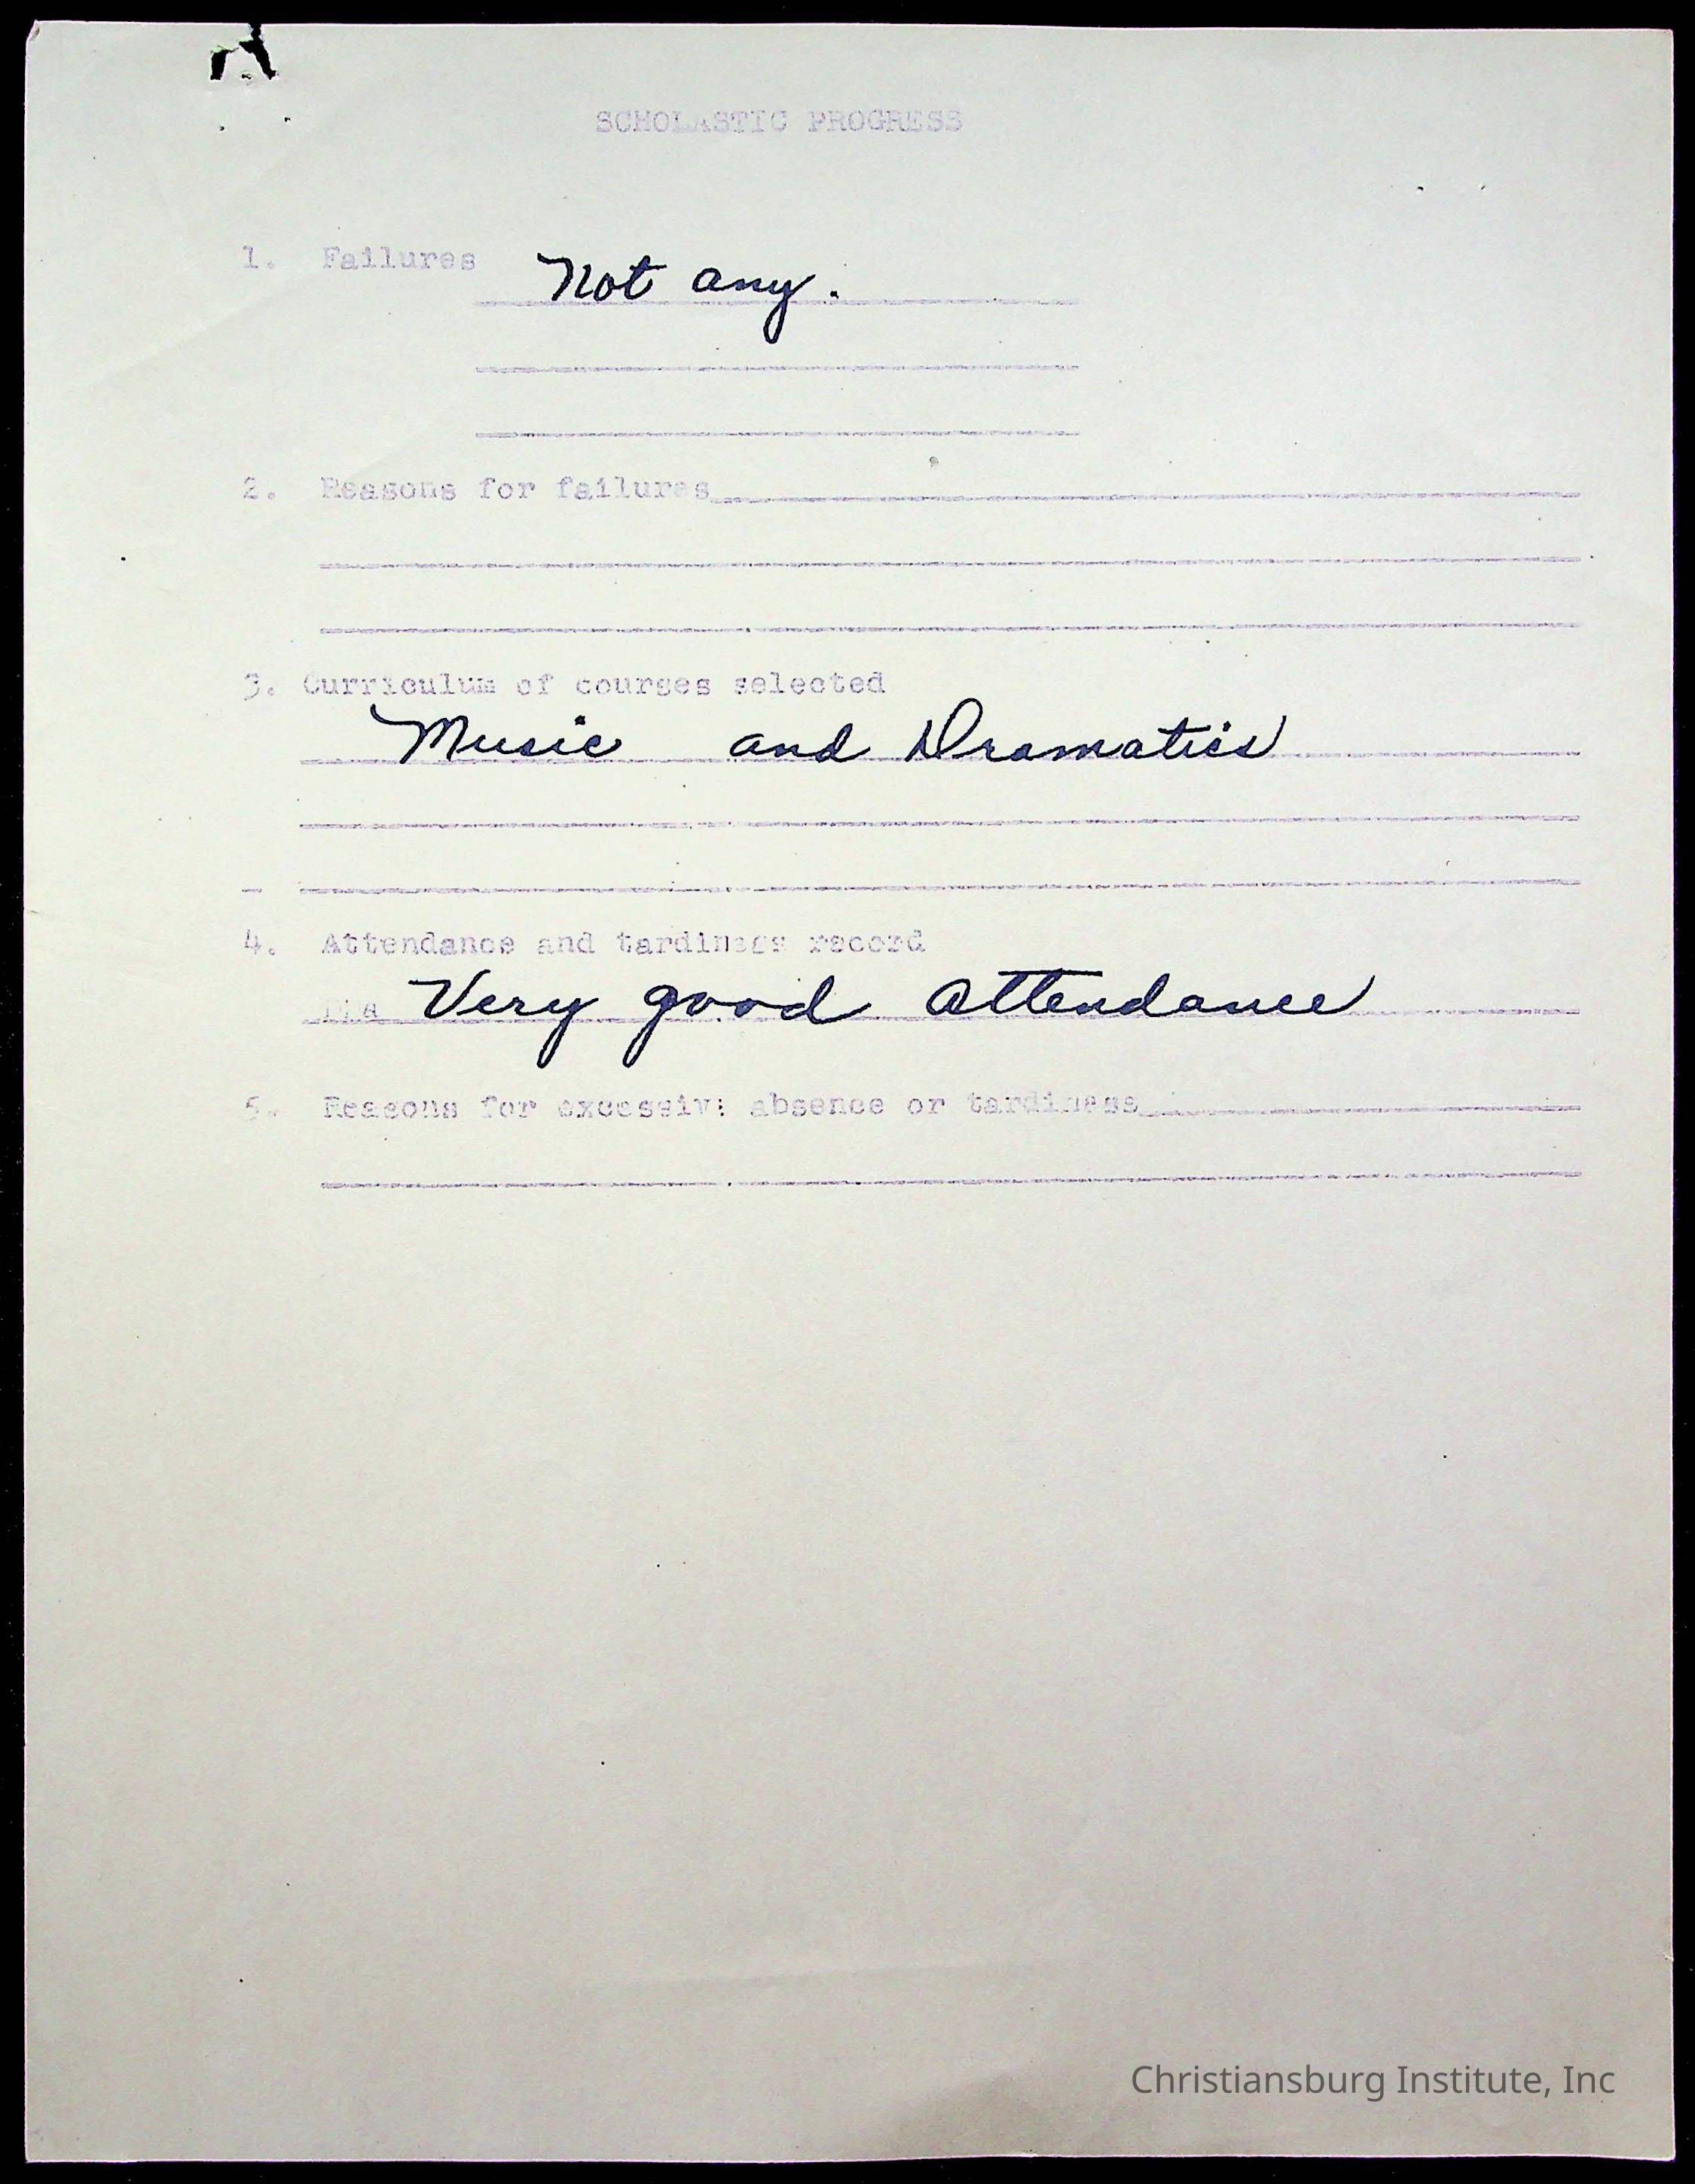 SCHOLASTIC PROGRESS
1. Failures Not any.
2. Reasons for failures
3. Curriculum of courses selected
Music and Dramatics
4. Attendance and tardiness record
Very good attendance
5. Reasons for excessive absence or tardiness
Christiansburg Institute, Inc